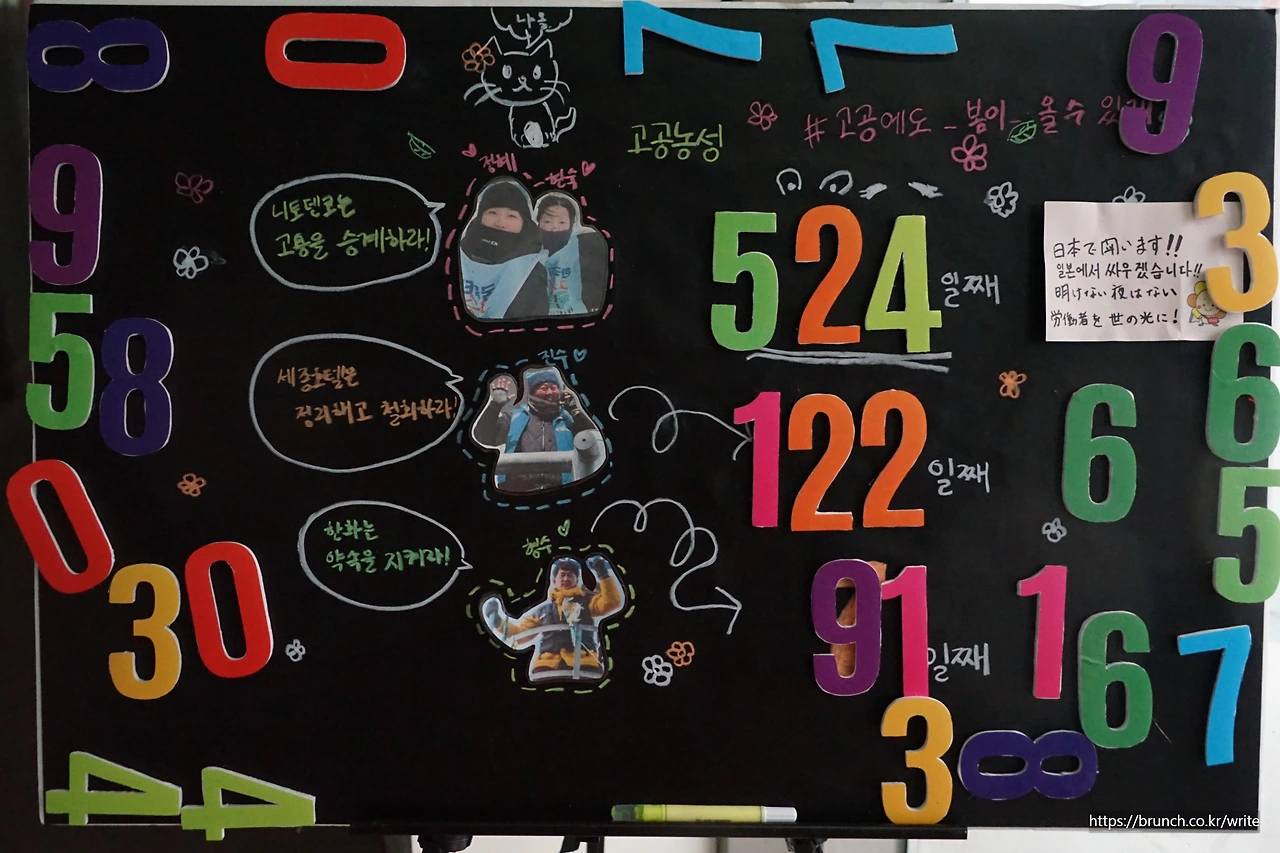 8 0 7 7 9
나몰
고공농성
#고공에도_봄이_올수 있
9
정혜
현숙
니토덴코는
고용을 승계하라!
524일째
3
日本で闘います!!
일본에서 싸우겠습니다!!
明けない夜はない
労働者を世の光に!
5 8
진수
세종호텔은
정리해고 철회하라!
122일째
6
6
5
0
3 0
한화는
약속을 지켜라!
형수
91일째
1
6
7
3
8
4 4
https://brunch.co.kr/write